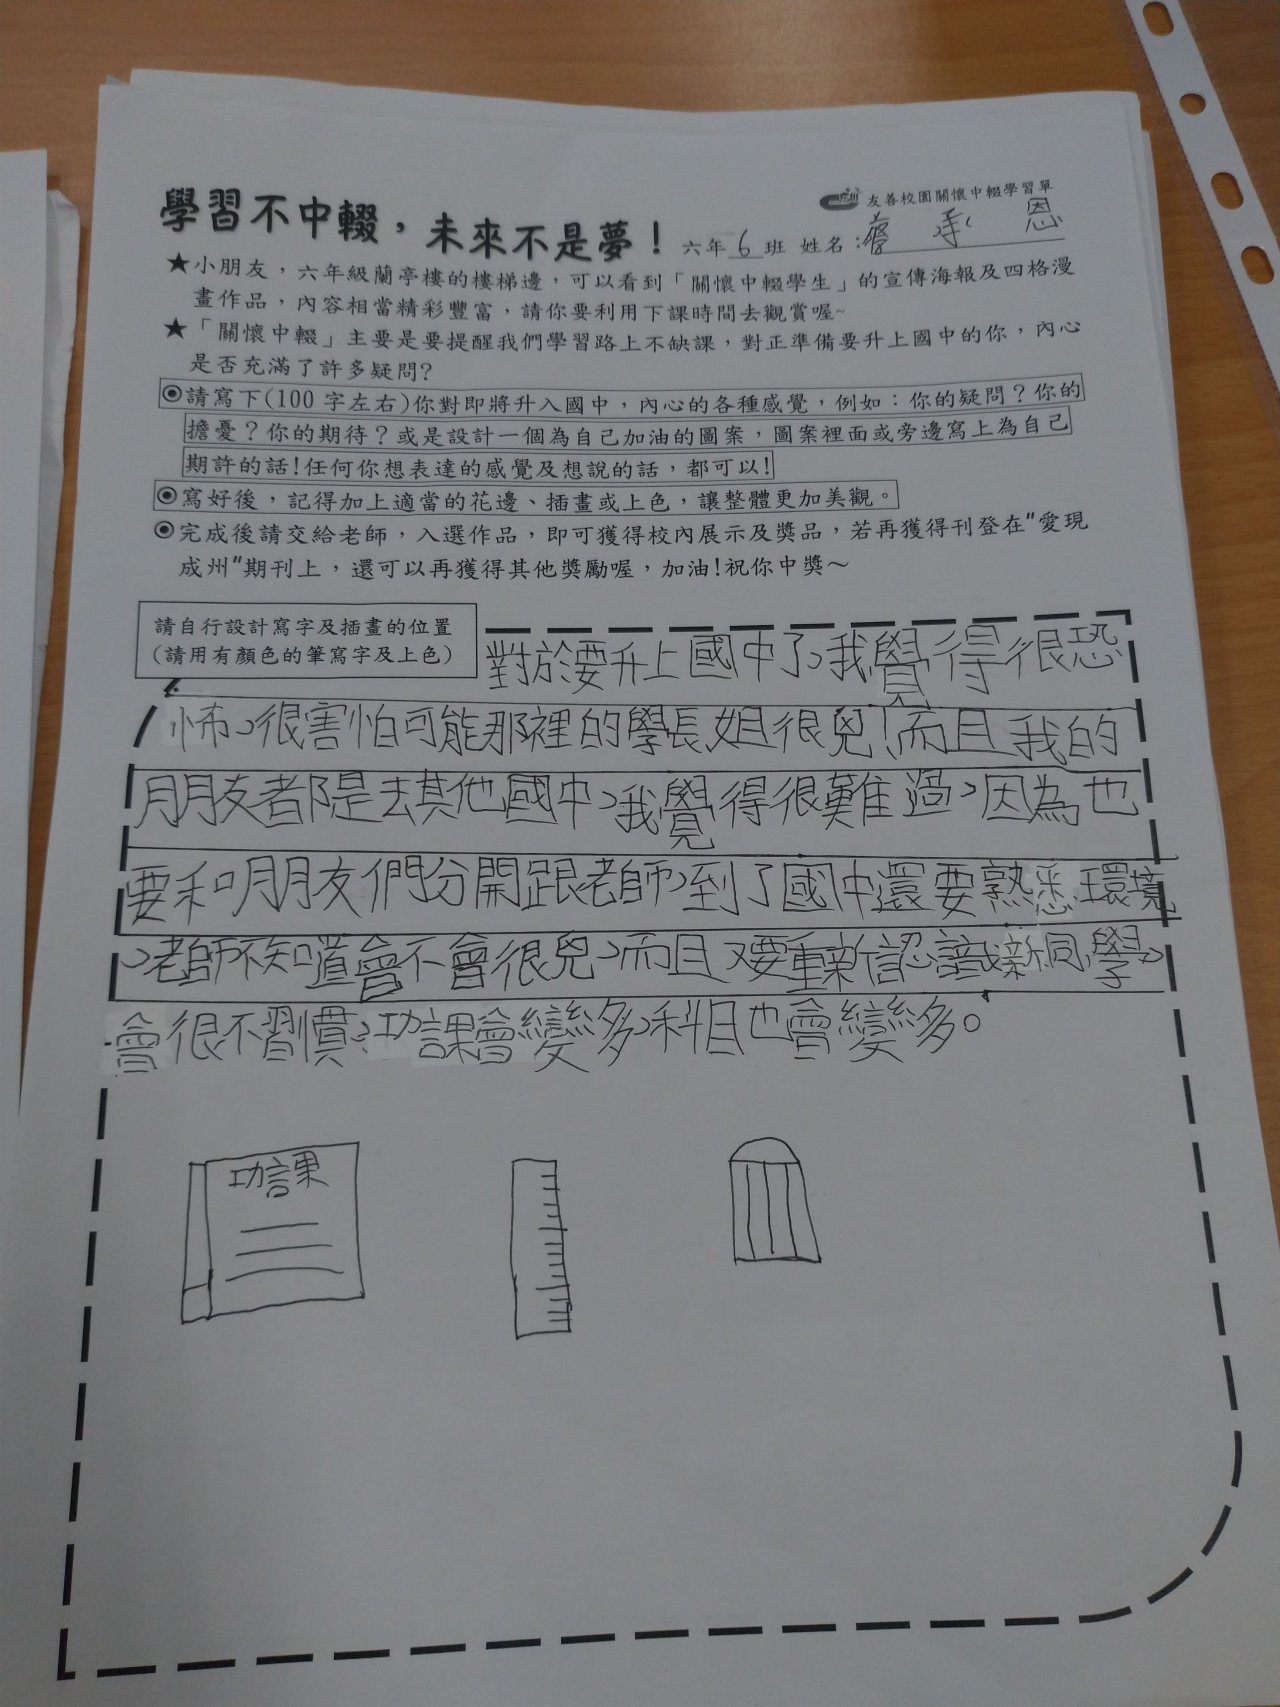 友善校園關懷中輟學習單
學習不中輟，未來不是夢！ 六年6班 姓名：蔡承恩
★小朋友，六年級蘭亭樓的樓梯邊，可以看到「關懷中輟學生」的宣傳海報及四格漫
畫作品，內容相當精彩豐富，請你要利用下課時間去觀賞喔~
★「關懷中輟」主要是要提醒我們學習路上不缺課，對正準備要升上國中的你，內心
是否充滿了許多疑問?
◉請寫下(100字左右)你對即將升入國中，內心的各種感覺，例如：你的疑問？你的
擔憂？你的期待？或是設計一個為自己加油的圖案，圖案裡面或旁邊寫上為自己
期許的話!任何你想表達的感覺及想說的話，都可以!
◉寫好後，記得加上適當的花邊、插畫或上色，讓整體更加美觀。
◉完成後請交給老師，入選作品，即可獲得校內展示及獎品，若再獲得刊登在"愛現
成州"期刊上，還可以再獲得其他獎勵喔，加油!祝你中獎～
請自行設計寫字及插畫的位置
(請用有顏色的筆寫字及上色)
對於要升上國中了，我覺得很恐
怖，很害怕可能那裡的學長姐很兇!而且我的
朋友都是去其他國中，我覺得很難過，因為也
要和朋友們分開跟老師，到了國中還要熟悉環境
，老師不知道會不會很兇，而且又要重新認識新同學，
會很不習慣，功課會變多，科目也會變多。
功課